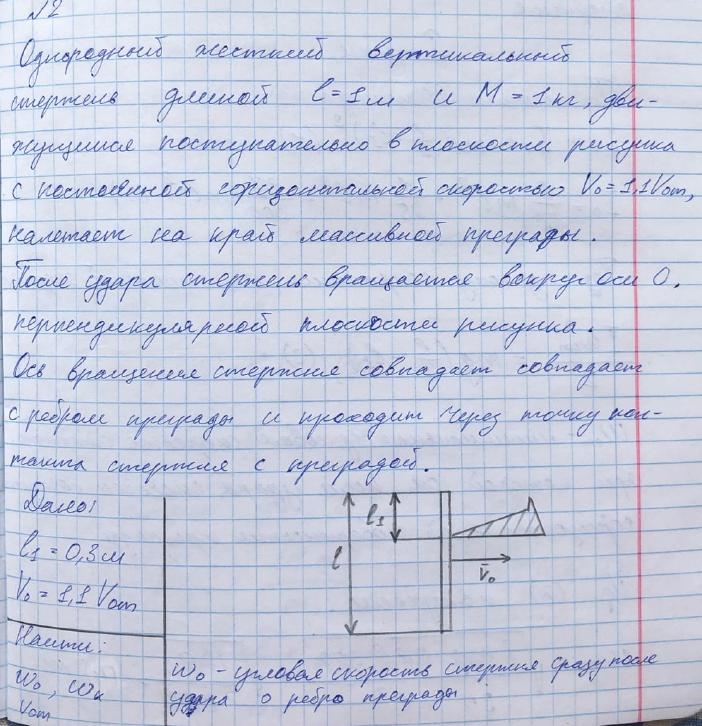 №2
Однородный жесткий вертикальный
стержень длиной l=1м и М=1кг, дви-
жущийся поступательно в плоскости рисунка
с постоянной горизонтальной скоростью V₀=1,1Vom,
налетает на край массивной преграды.
После удара стержень вращается вокруг оси О,
перпендикулярной плоскости рисунка.
Ось вращения стержня совпадает совпадает
с ребром преграды и проходит через точку кон-
такта стержня с преградой.
Дано:
l₁=0,3м
V₀=1,1Vom
Найти:
ω₀, ωк
Vom
l
l₁
V̄₀
ω₀ - угловая скорость стержня сразу после
удара о ребро преграды